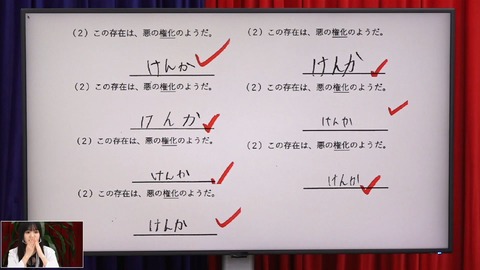 (2) この存在は、悪の権化のようだ。
けんか
(2) この存在は、悪の権化のようだ。
けんか
(2) この存在は、悪の権化のようだ。
けんか
(2) この存在は、悪の権化のようだ。
けんか
(2) この存在は、悪の権化のようだ。
けんか
(2) この存在は、悪の権化のようだ。
けんか
(2) この存在は、悪の権化のようだ。
けんか